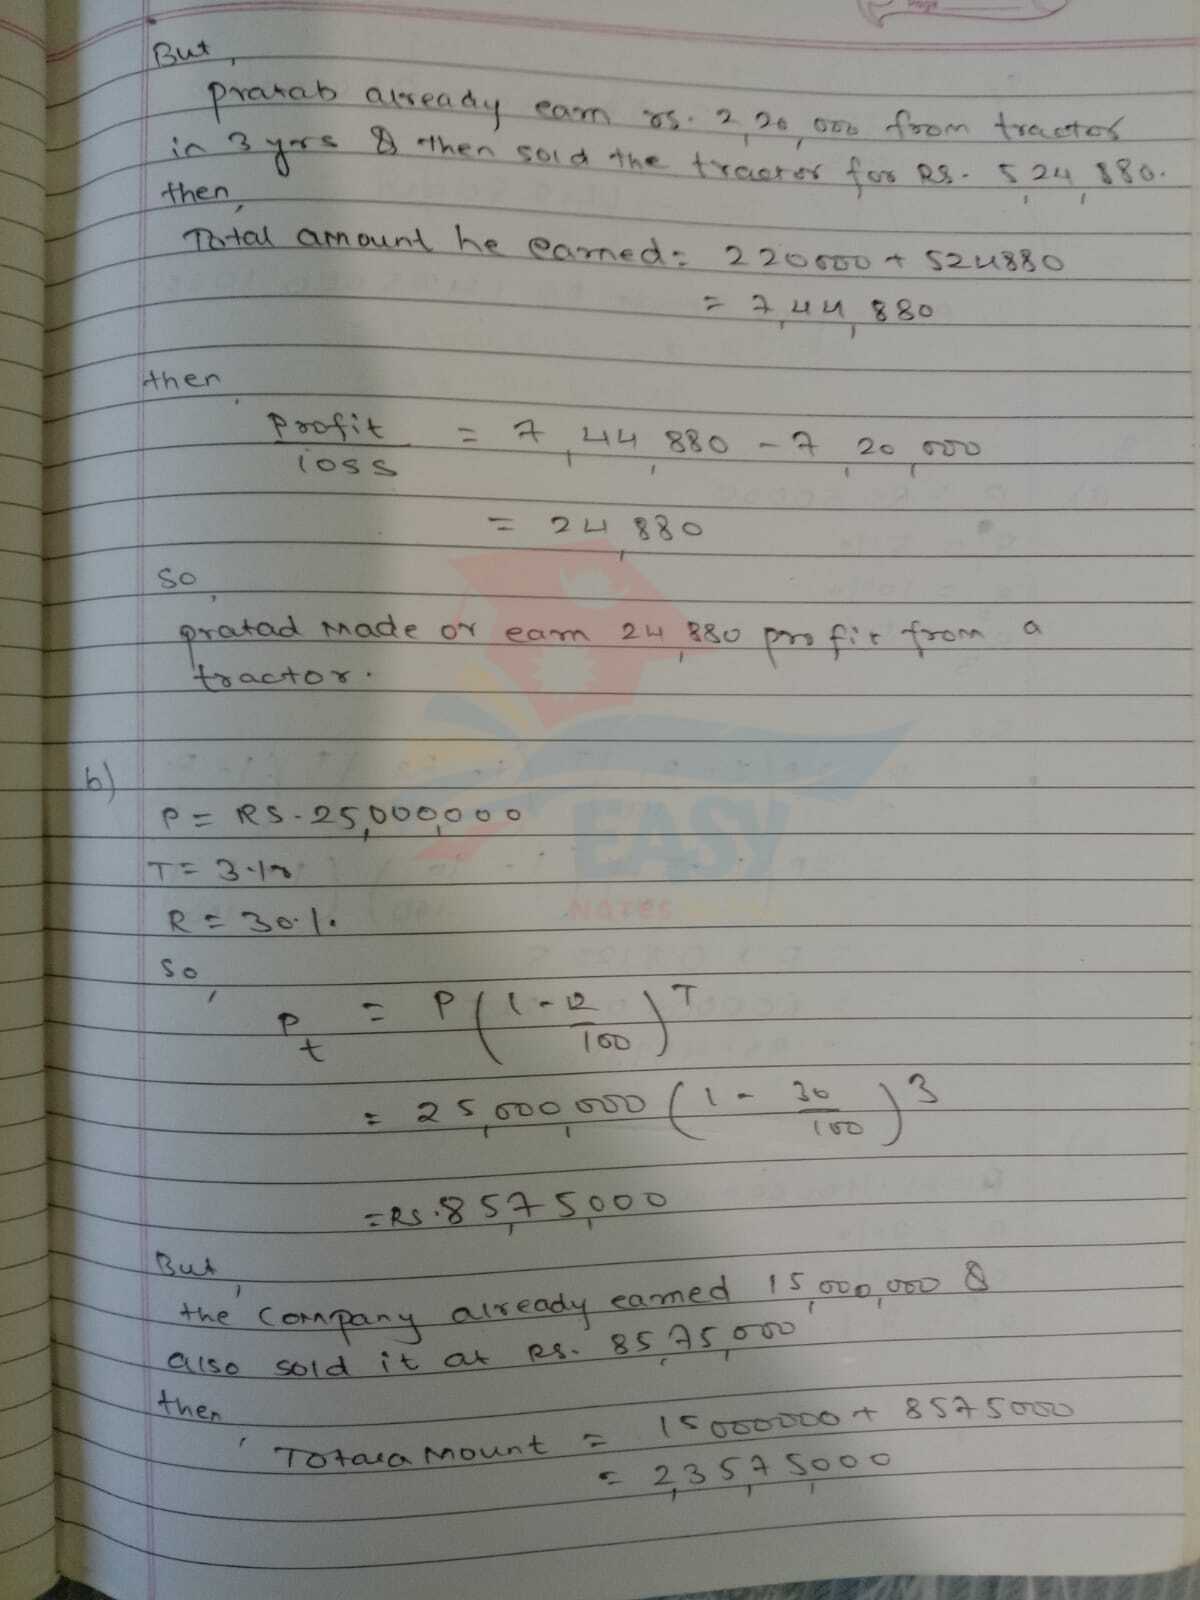 Page
But,
pratab already earn rs. 2,20,000 from tractor
in 3 yrs & then sold the tractor for RS. 5,24,880.
then,
Total amount he earned = 220000 + 524880
= 7,44,880
then,
Profit = 7,44,880 - 7,20,000
loss
= 24,880
so,
pratad made or earn 24,880 profit from a
tractor.
b)
P = RS. 25,000,000
T = 3
R = 30%
so,
Pt = P(1 - R/100)^T
= 25,000,000 (1 - 30/100)^3
= RS. 8575,000
But,
the company already earned 15,000,000 &
also sold it at RS. 8575,000
then,
Total amount = 15000000 + 8575000
= 2,35,75,000
EASY
NOTES